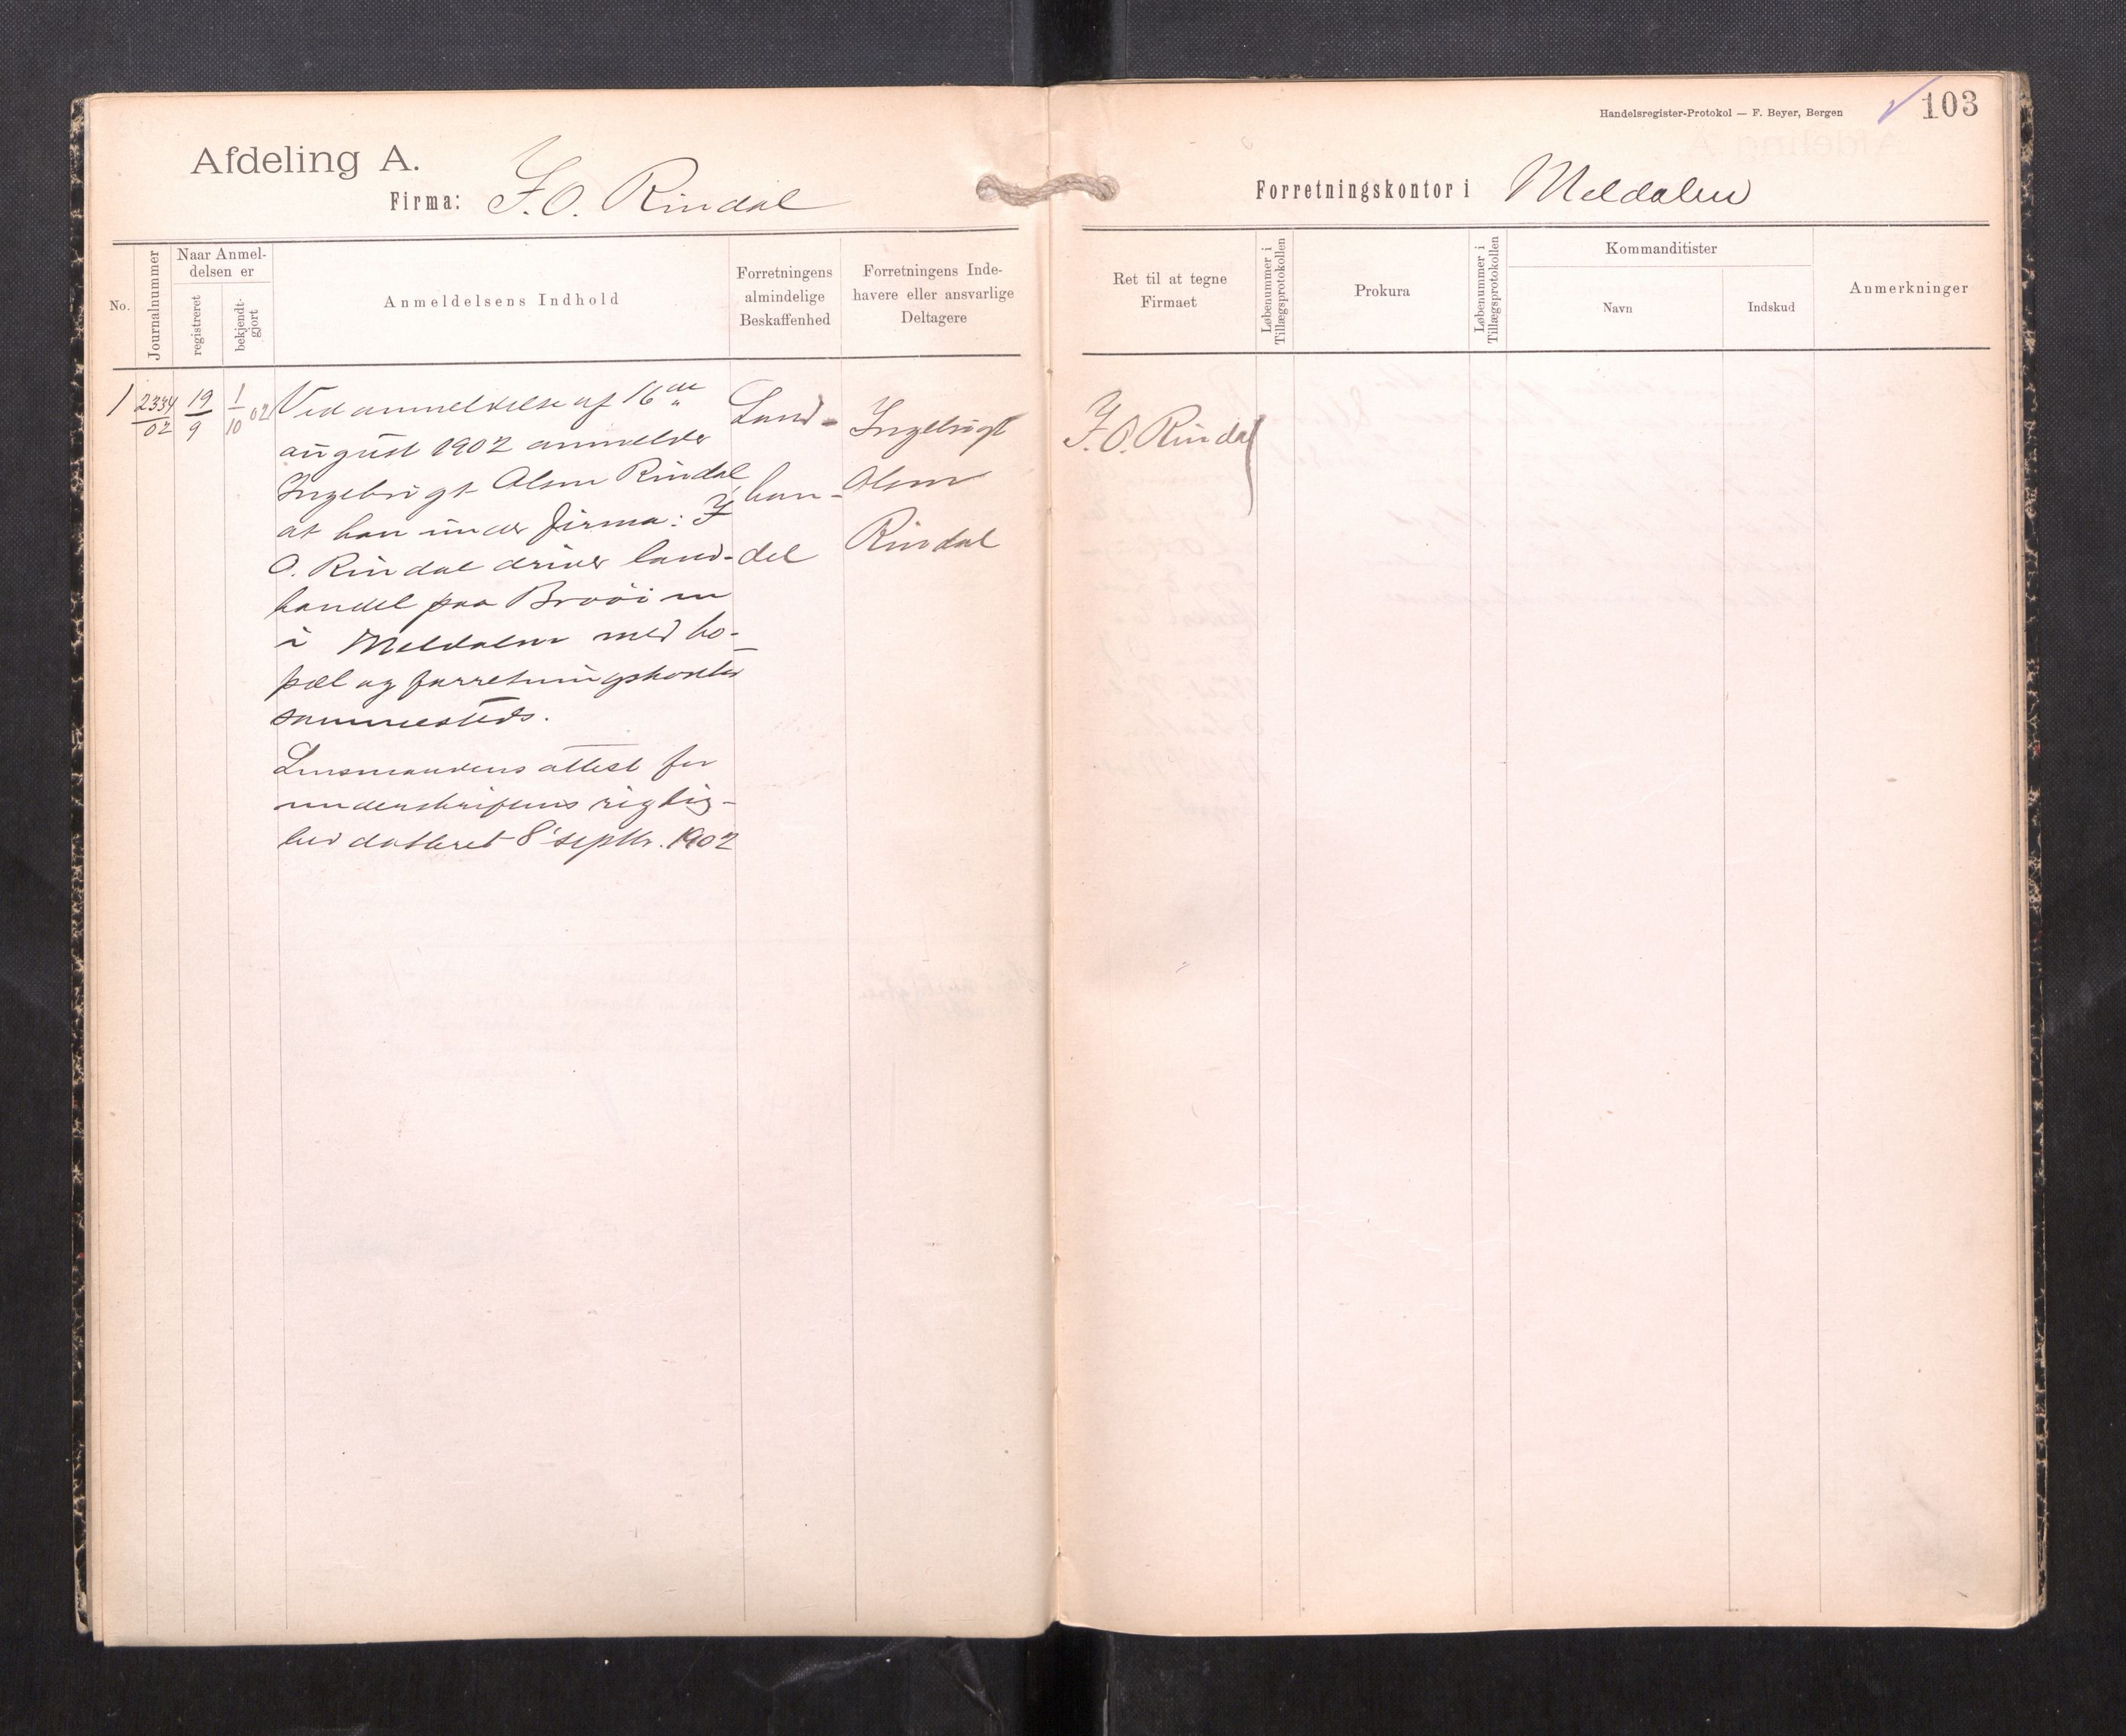 Afdeling A.
Firma: I. O. Rindal
No.
Journalnummer
Naar Anmel-
delsen er
registreret
bekjendt-
gjort
Anmeldelsens Indhold
Forretningens
almindelige
Beskaffenhed
Forretningens Inde-
havere eller ansvarlige
Deltagere
1
2334
02
19
9
1
10 02
Ved anmeldelse af 16de
august 1902 anmelder
Ingebrigt Olsen Rindal,
at han under firma: I
O. Rindal driver land-
handel paa
i Meldalen med bo-
pæl og forretningskontor
sammesteds.
Lensmandens attest for
underskriftens rigtig-
hed datteret 8 septbr. 1902
Land-
han-
del
Ingebrigt
Olsen
Rindal
Handelsregister-Protokol — F. Beyer, Bergen
103
Forretningskontor i Meldalen
Ret til at tegne
Firmaet
Løbenummer i
Tillægsprotokollen
Prokura
Løbenummer i
Tillægsprotokollen
Kommanditister
Navn
Indskud
Anmerkninger
I. O. Rindal